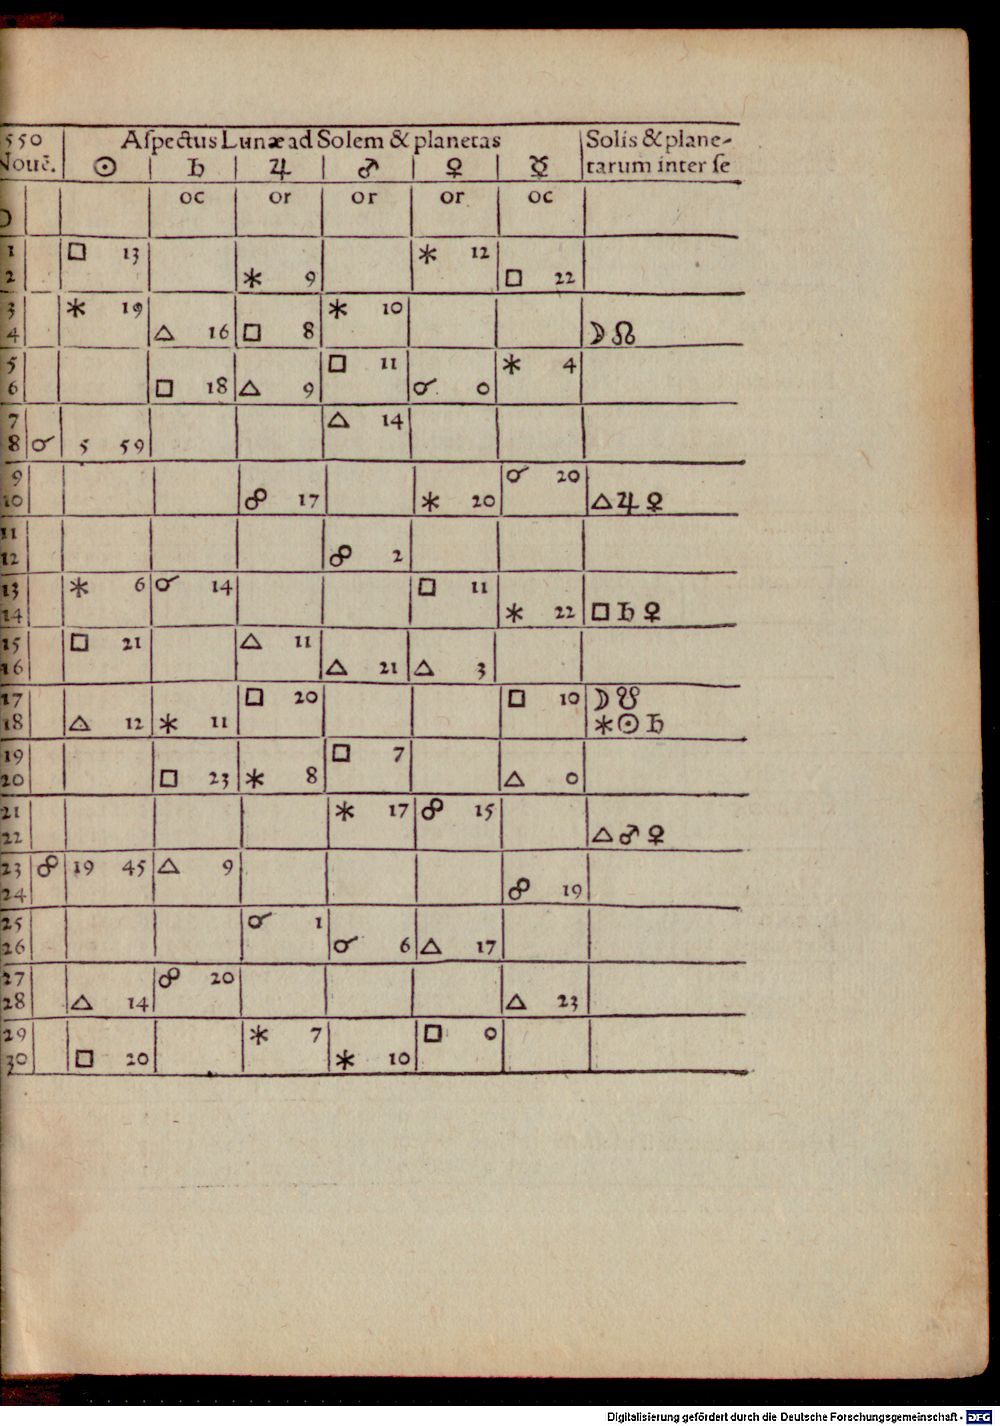 550 Aſpectus Lunæ ad Solem & planetas Solis & plane-
Nouē. ☉ ♄ ♃ ♂ ♀ ☿ tarum inter ſe
oc or or or oc
1 □ 13 ⚹ 12
2 ⚹ 9 □ 22
3 ⚹ 19 ⚹ 10
4 △ 16 □ 8 ☽ ☊
5 □ 11 ⚹ 4
6 □ 18 △ 9 ☌ 0
7 △ 14
8 ☌ 5 59
9 ☌ 20
10 ☍ 17 ⚹ 20 △ ♃ ♀
11
12 ☍ 2
13 ⚹ 6 ☌ 14 □ 11
14 ⚹ 22 □ ♄ ♀
15 □ 21 △ 11
16 △ 21 △ 3
17 □ 20 □ 10 ☽ ☋
18 △ 12 ⚹ 11 ⚹ ☉ ♄
19 □ 7
20 □ 23 ⚹ 8 △ 0
21 ⚹ 17 ☍ 15
22 △ ♂ ♀
23 ☍ 19 45 △ 9
24 ☍ 19
25 ☌ 1
26 ☌ 6 △ 17
27 ☍ 20
28 △ 14 △ 23
29 ⚹ 7 □ 0
30 □ 20 ⚹ 10
Digitalisierung gefördert durch die Deutsche Forschungsgemeinschaft - DFG